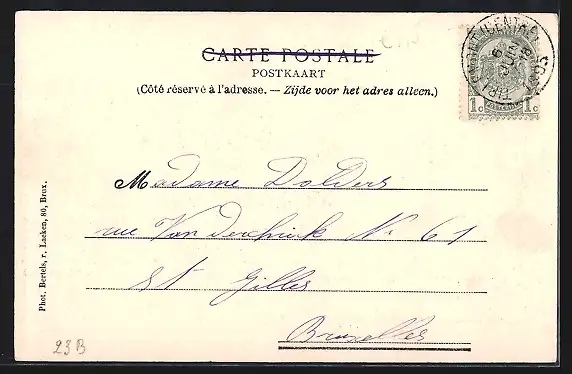 CARTE POSTALE
POSTKAART
(Côté réservé à l'adresse. — Zijde voor het adres alleen.)
1c 1c
Madame Dolders
rue Vanderschrick N° 61
St Gilles
Bruxelles
Phot. Bertels, r. Laeken, 80, Brux.
23B